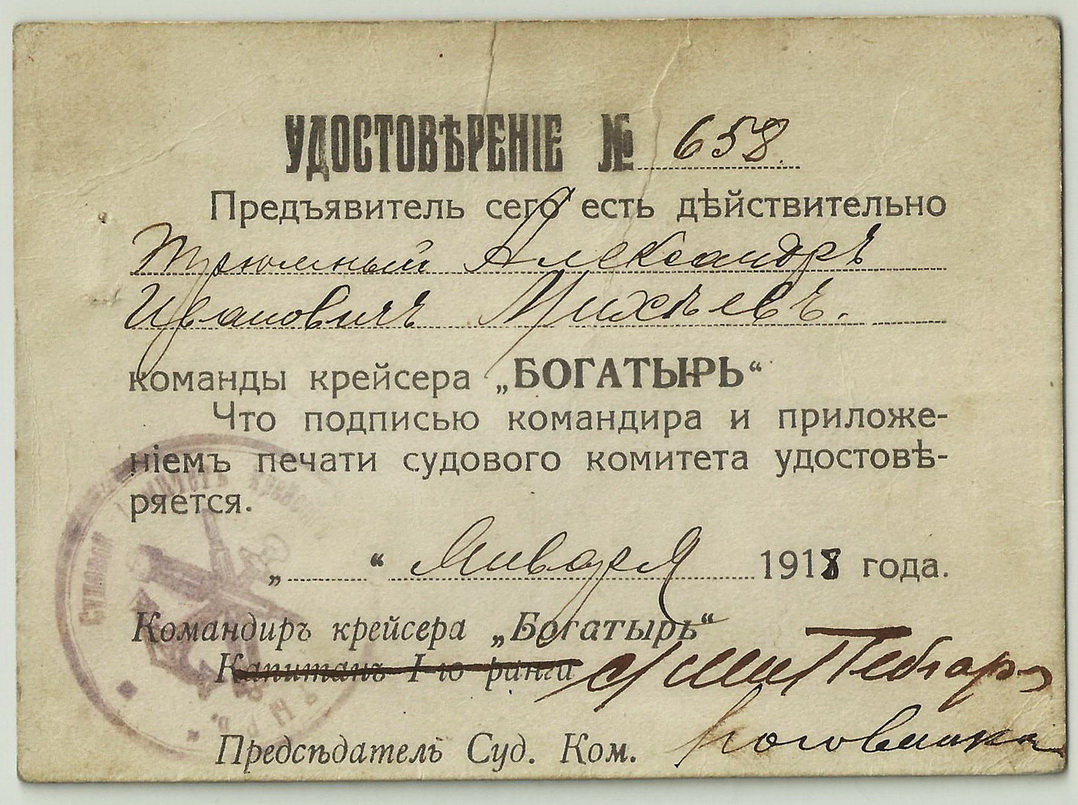 УДОСТОВѢРЕНІЕ № 658.
Предъявитель сего есть дѣйствительно
Трюмный Александръ
Ивановичъ Михѣевъ.
команды крейсера „БОГАТЫРЬ“
Что подписью командира и приложе-
ніемъ печати судового комитета удостовѣ-
ряется.
„ “ Января 1918 года.
Командиръ крейсера „Богатырь“
Капитанъ I-го ранга
Предсѣдатель Суд. Ком.
Судовой Комитетъ Крейсера